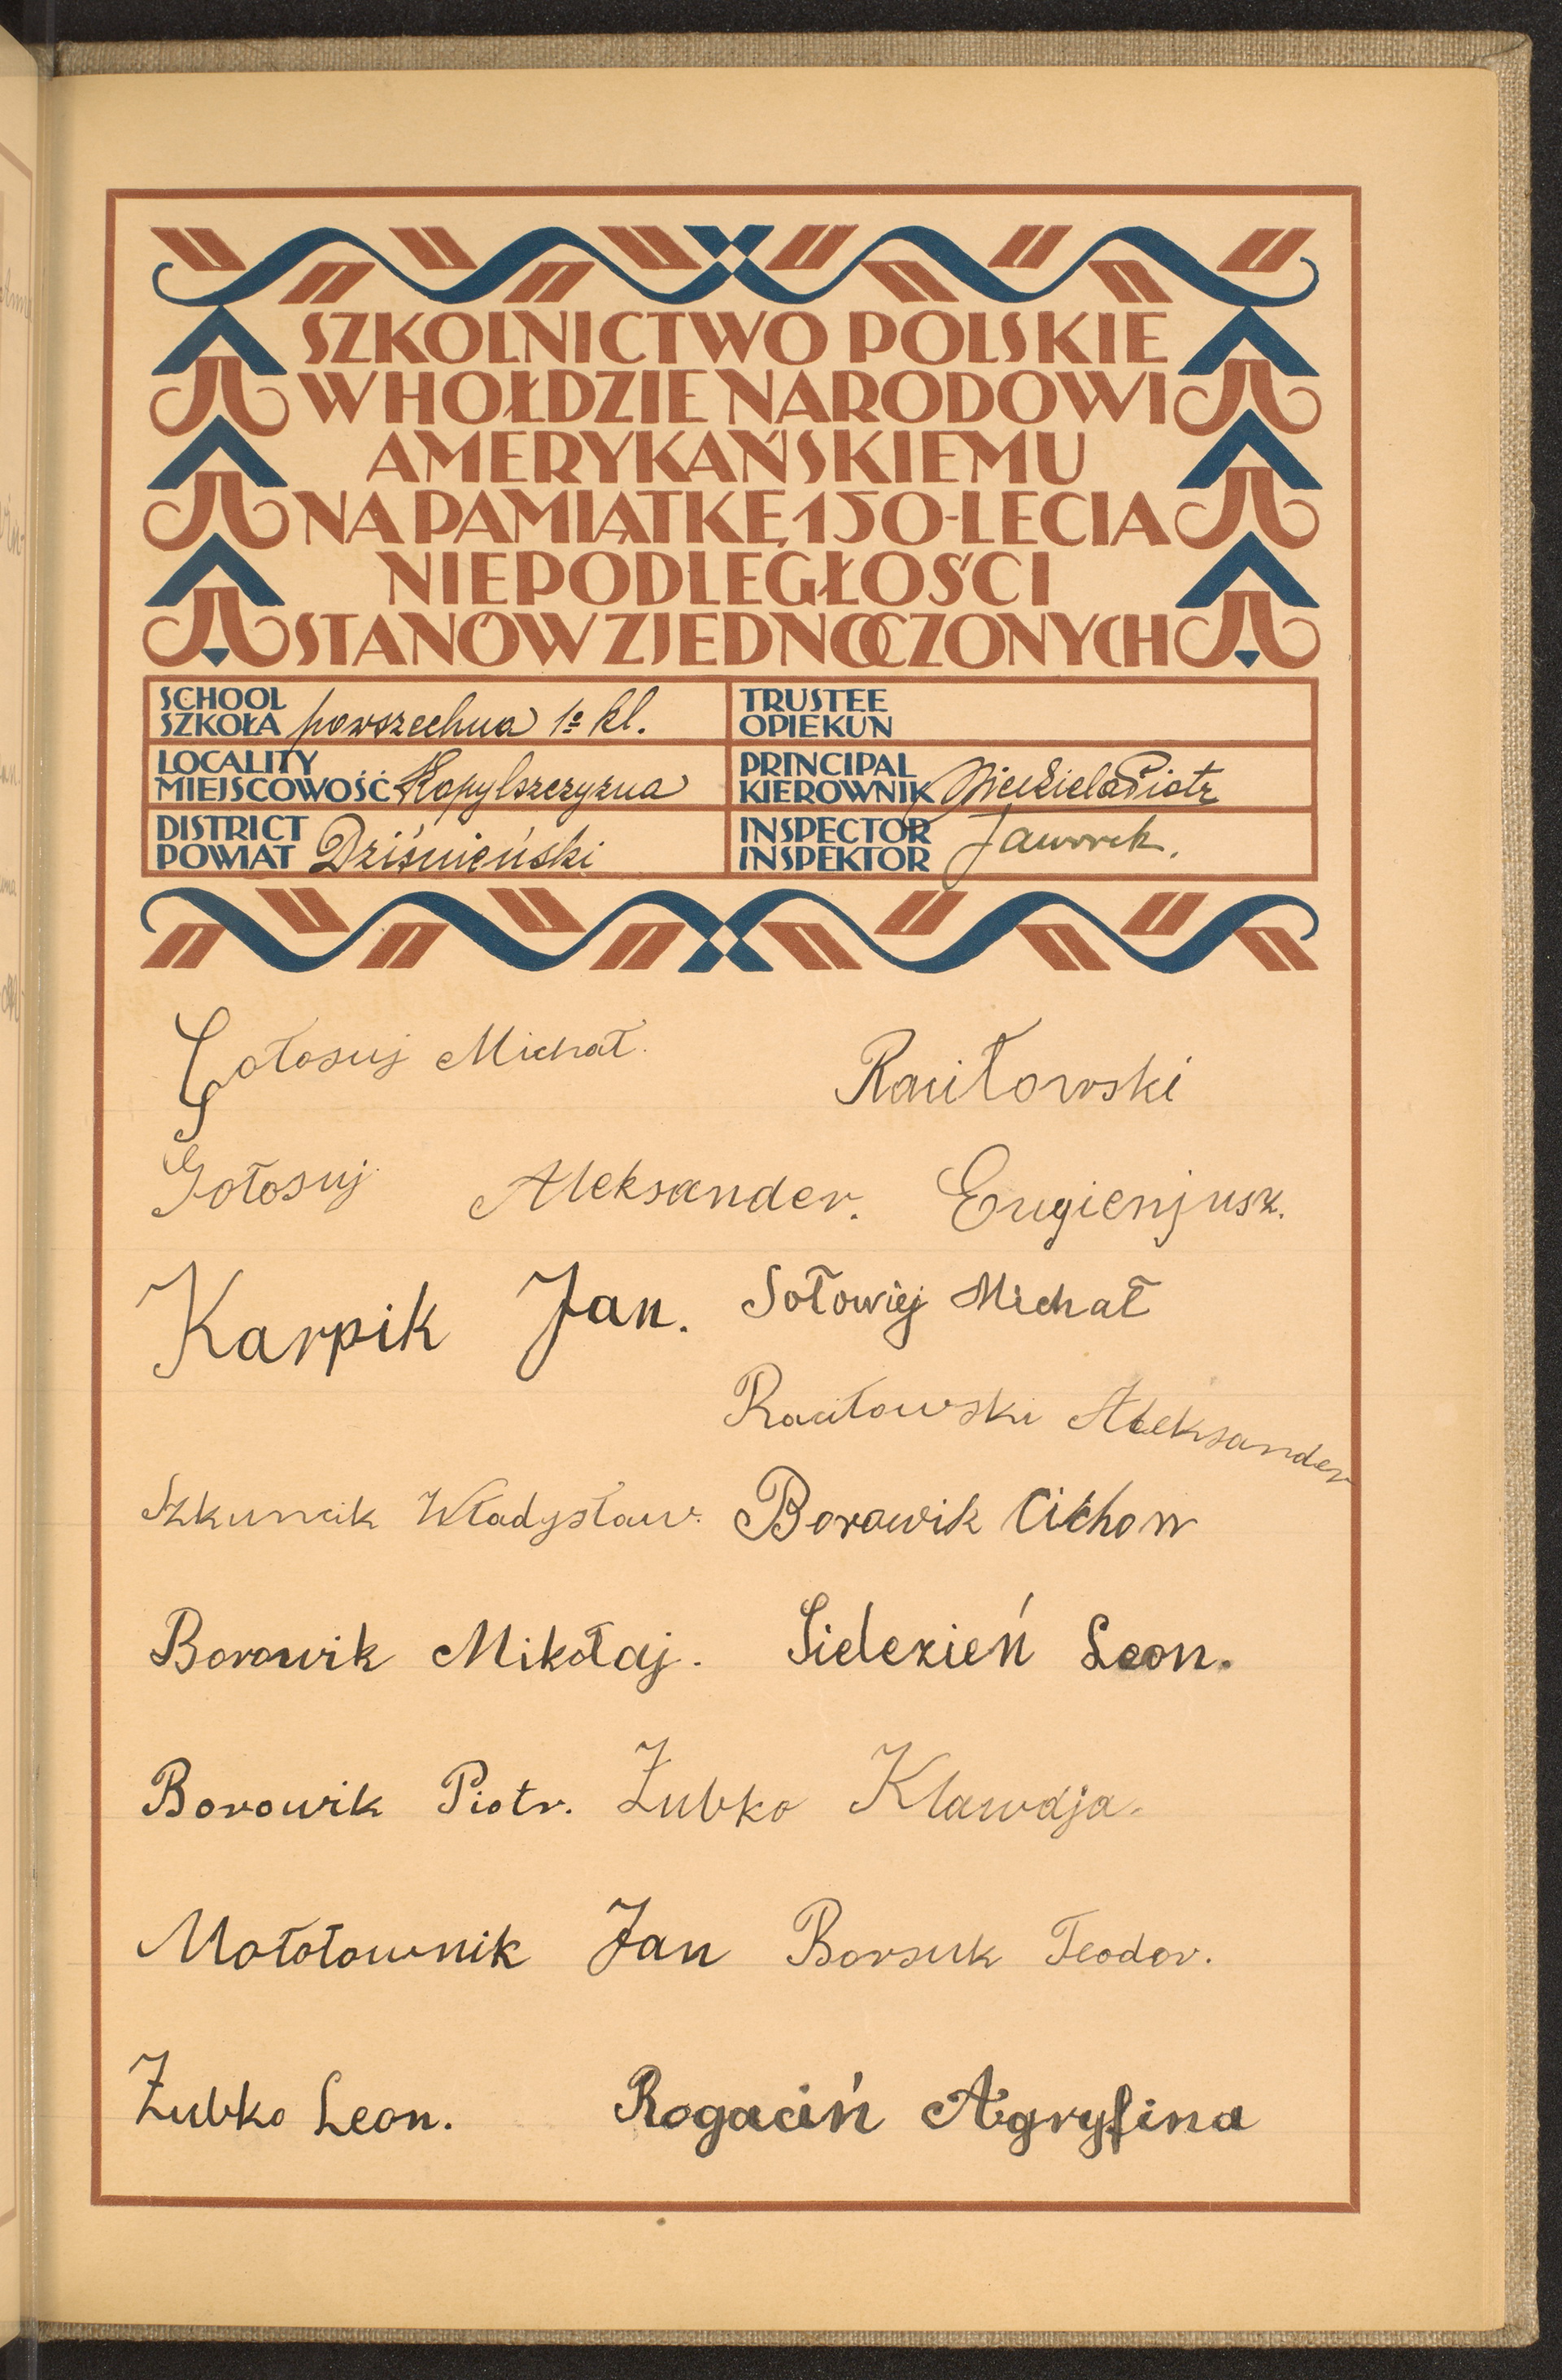 SZKOLNICTWO POLSKIE
W HOŁDZIE NARODOWI
AMERYKAŃSKIEMU
NA PAMIĄTKĘ 150-LECIA
NIEPODLEGŁOŚCI
STANÓW ZJEDNOCZONYCH
SCHOOL
SZKOŁA powszechna 1º kl.
TRUSTEE
OPIEKUN
LOCALITY
MIEJSCOWOŚĆ Kopylszczyzna
PRINCIPAL
KIEROWNIK Niedziela Piotr
DISTRICT
POWIAT Dziśnieński
INSPECTOR
INSPEKTOR Jaworek.
Gołosuj Michał. Raciłowski
Gołosuj Aleksander. Eugienjusz.
Karpik Jan. Sołowiej Michał
Raciłowski Aleksander
Władysław. Borowik Cichon
Borowik Mikołaj. Sielezień Leon.
Borowik Piotr. Zubko Klawdja.
Mołotownik Jan Borsuk Teodor.
Zubko Leon. Rogaciń Agryfina